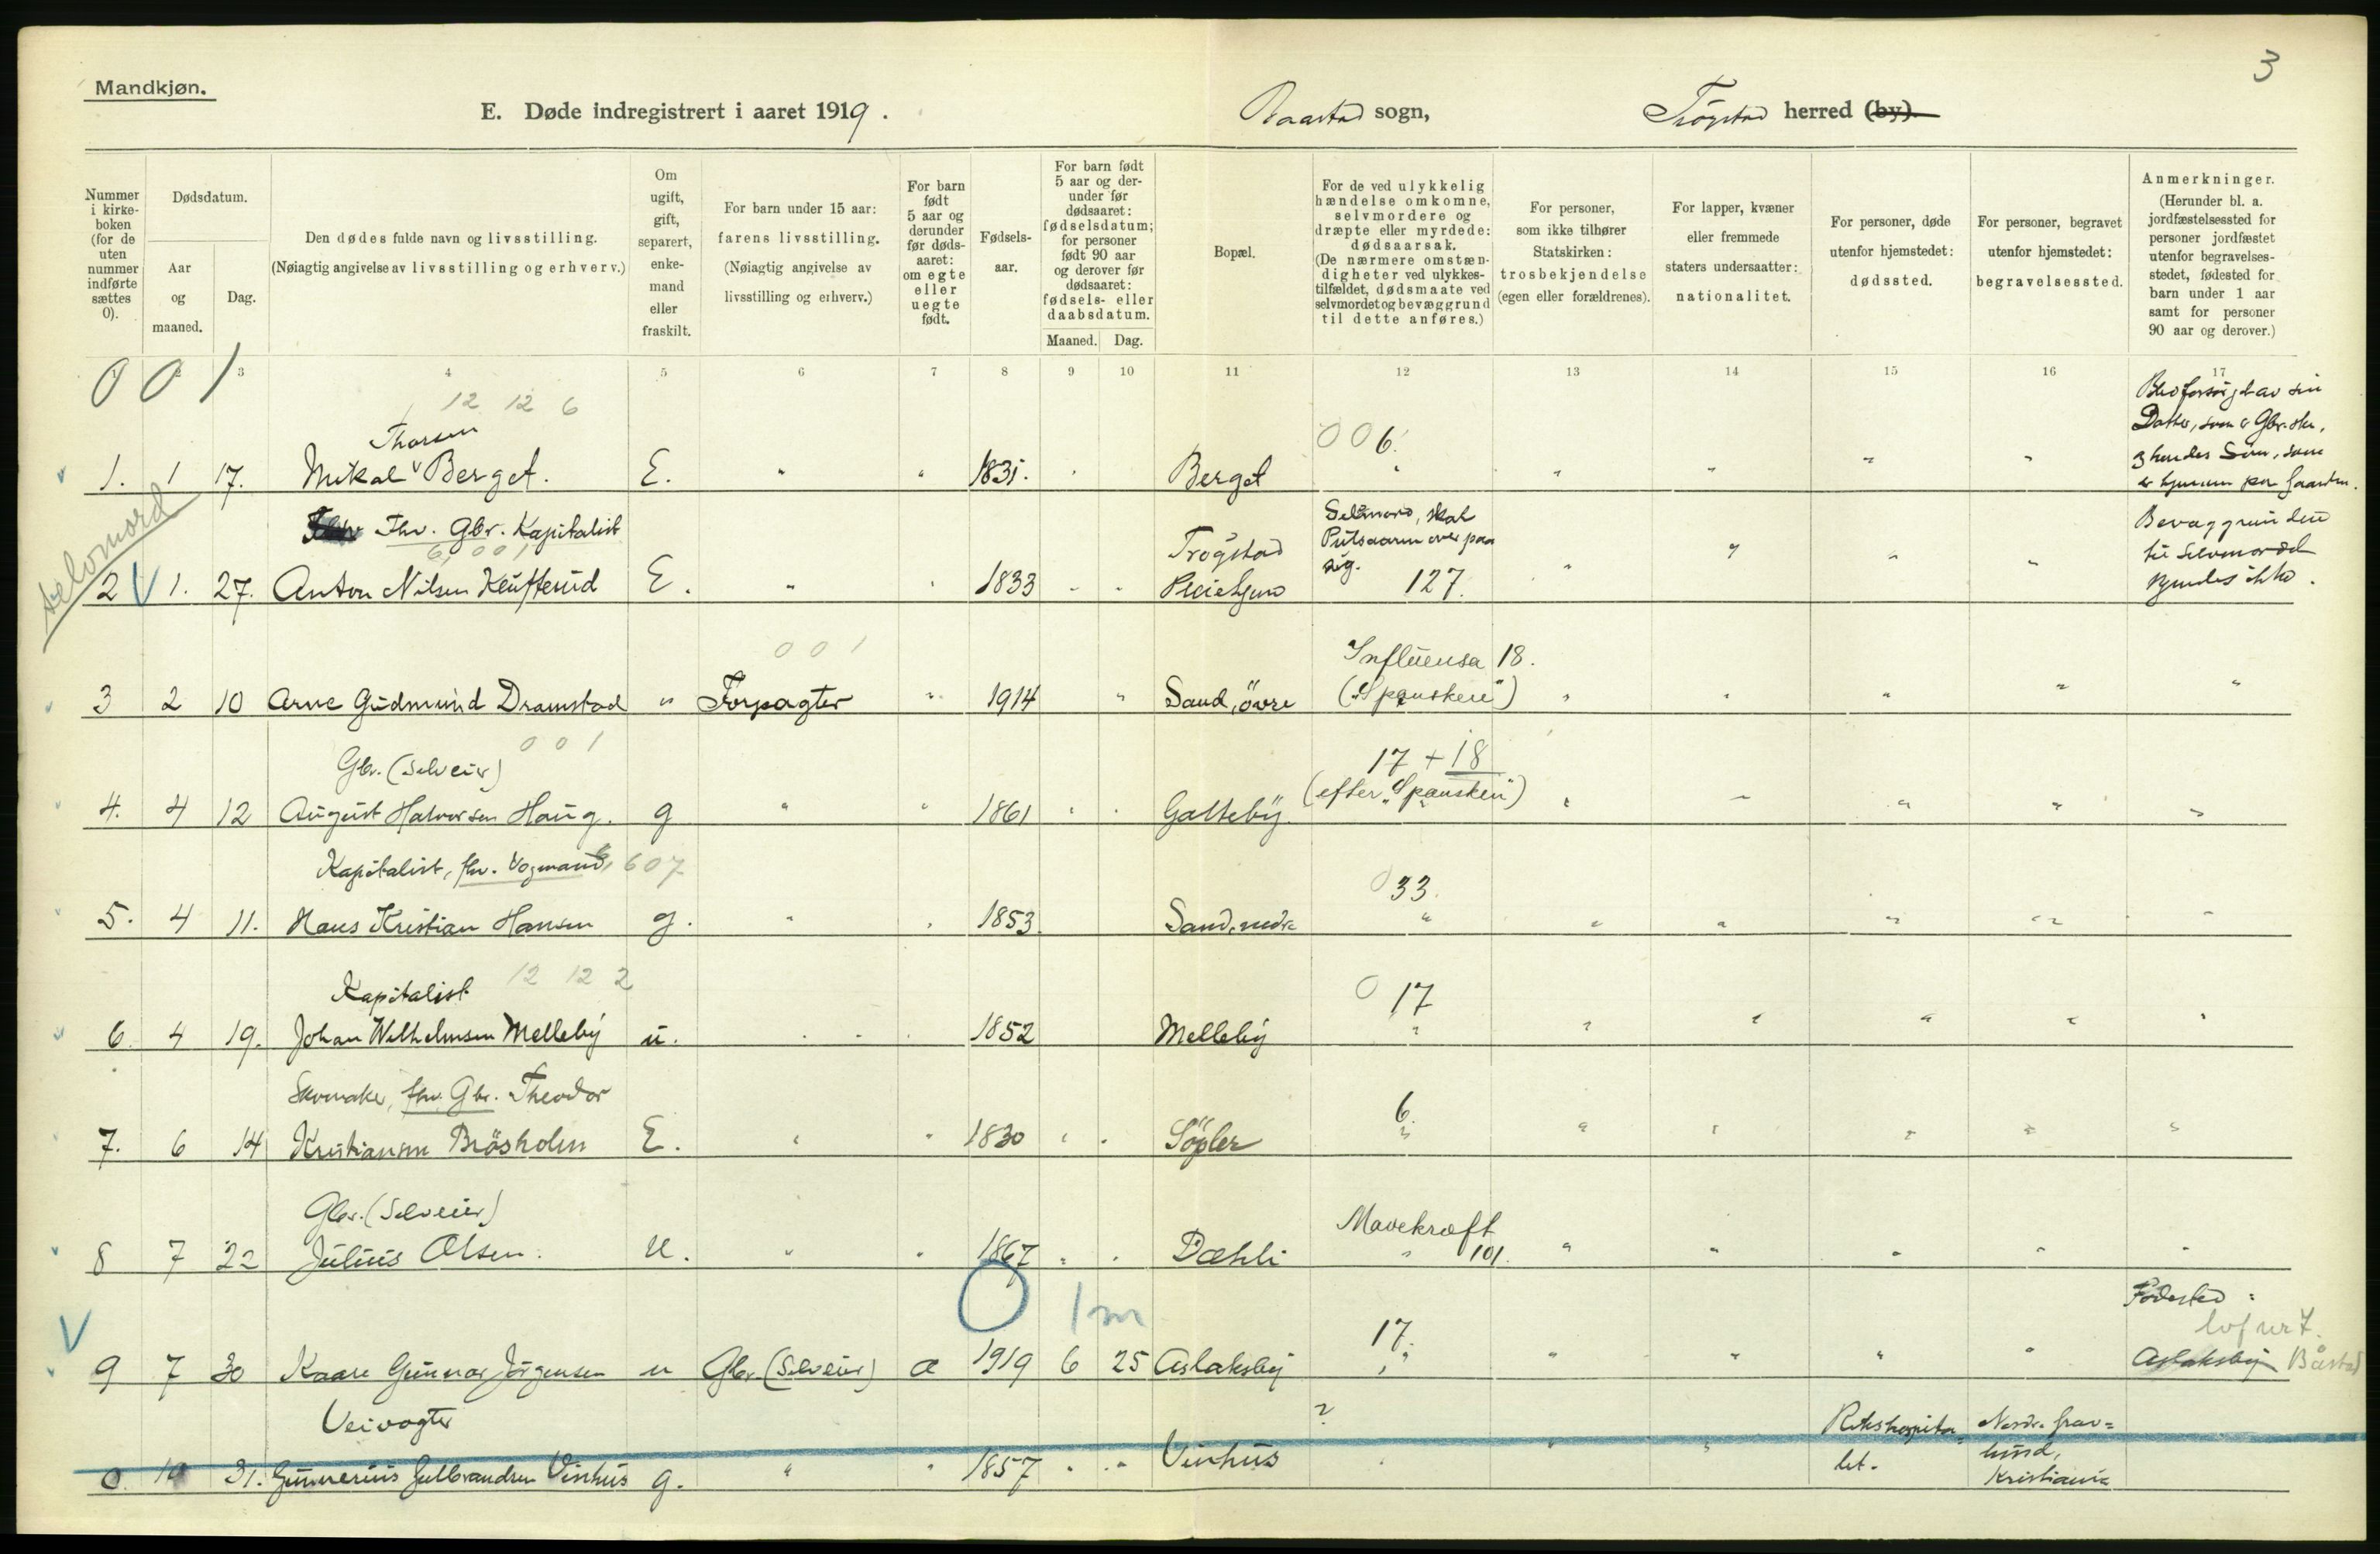 3
Mandkjøn.
E. Døde indregistrert i aaret 1919.
Baastad sogn,
Trøgstad herred (by).
Nummer i kirke-boken (for de uten nummer indførte sættes 0).
Dødsdatum.
Aar og maaned.
Dag.
Den dødes fulde navn og livsstilling.
(Nøiagtig angivelse av livsstilling og erhverv.)
Om ugift, gift, separert, enke-mand eller fraskilt.
For barn under 15 aar: farens livsstilling.
(Nøiagtig angivelse av livsstilling og erhverv.)
For barn født 5 aar og derunder før døds-aaret: om egte eller uegte født.
Fødsels-aar.
For barn født 5 aar og der-under før dødsaaret: fødselsdatum; for personer født 90 aar og derover før dødsaaret: fødsels- eller daabsdatum.
Maaned.
Dag.
Bopæl.
For de ved ulykkelig hændelse omkomne, selvmordere og dræpte eller myrdede: dødsaarsak.
(De nærmere omstæn-digheter ved ulykkes-tilfældet, dødsmaate ved selvmordet og bevæggrund til dette anføres.)
For personer, som ikke tilhører Statskirken: trosbekjendelse (egen eller forældrenes).
For lapper, kvæner eller fremmede staters undersaatter: nationalitet.
For personer, døde utenfor hjemstedet: dødssted.
For personer, begravet utenfor hjemstedet: begravelsessted.
Anmerkninger.
(Herunder bl. a. jordfæstelsessted for personer jordfæstet utenfor begravelses-stedet, fødested for barn under 1 aar samt for personer 90 aar og derover.)
1 2 3 4 5 6 7 8 9 10 11 12 13 14 15 16 17
0 0 1
12 12 6
Thorsen
006
Blev forsørget av sin
Datter, som er Gbr.
1. 1 17. Mikal Berget. E. " " 1831. Berget
Selvmord
Fhv. Gbr. Kapitalist
6, 001
Selvmord, skot
sig.
Bevæggrunden
til Selvmordet
kjendes ikke.
2 V 1. 27. Anton Nilsen E. " 1833 Trøgstad Pleiehjem 127.
001
Influensa 18.
3 2 10 Arne Gudmund Dramstad " Forpagter " 1914 " Sand, övre ("Spansken")
001
Gbr. (Selveier)
17 + 18
4. 4 12 August Halvorsen Haug. g " " 1861 Galteby. (efter "Spansken")
Kapitalist, fhv. Vognmand, 607
033.
5. 4 11. Hans Kristian Hansen g. " 1853 Sand, nedre
Kapitalist 12 12 2
0 17
6 4 19. Johan Wilhelmsen Melleby u. 1852 Melleby
Skomaker, fhv. Gbr. Theodor
6.
7. 6 14 Kristiansen Bråsholm E. " " 1830 Söpler
Gbr. (Selveier)
Mavekræft
8 7 22 Julius Olsen. u. " " 1867 Dæhli 101.
V
0 1m
17.
Fødested:
9 7 30 Kaare Gunnar Jörgensen u Gbr. (Selveier) æ 1919 6 25 Aslaksby Aslaksby Båstad
Veivogter
?
Rikshospita-
let.
Nordre Grav-
lund,
Kristiania
0. 10 31. Gunnerius Gulbrandsen Vinhus g. " " 1857 Vinhus